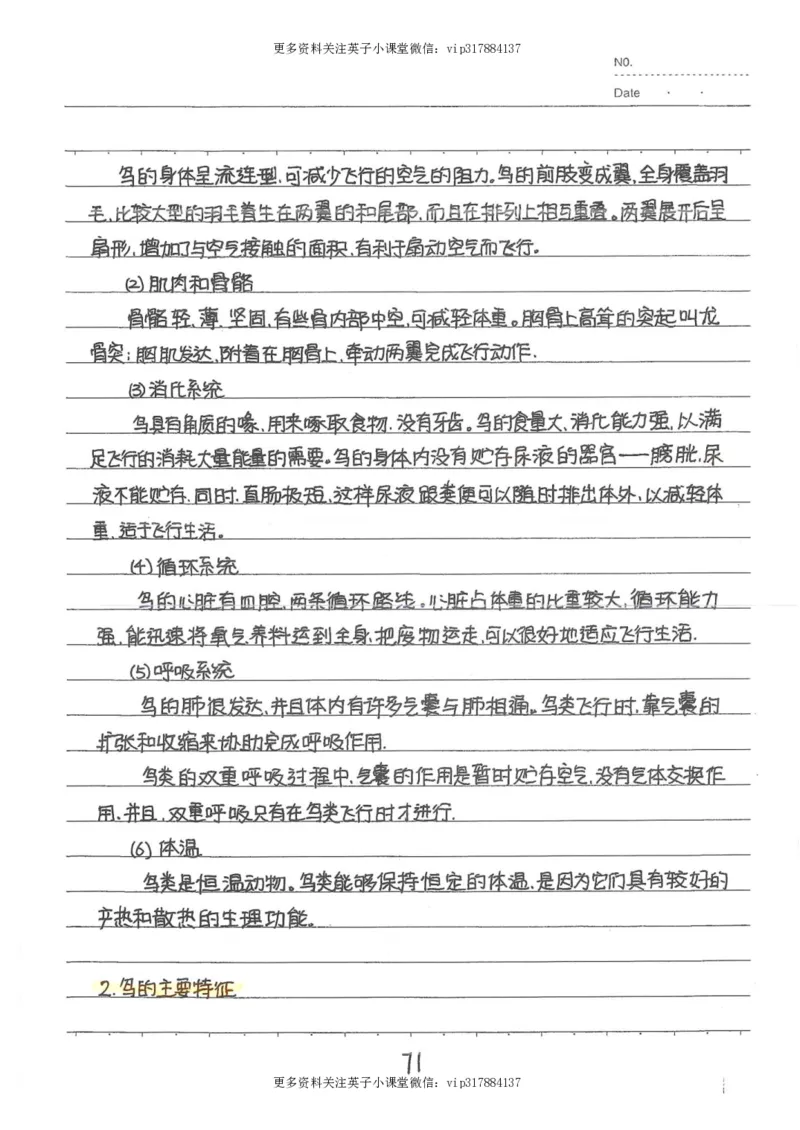 更多资料关注英子小课堂微信：vip317884137
NO.
Date
鸟的身体呈流连型,可减少飞行的空气的阻力。鸟的前肢变成翼,全身覆盖羽
毛,比较大型的羽毛着生在两翼的和尾部,而且在排列上相互重叠。两翼展开后呈
扇形,增加了与空气接触的面积,有利于扇动空气而飞行。
(2)肌肉和骨骼
骨骼轻,薄,坚固,有些骨内部中空,可减轻体重。胸骨上高耸的突起叫龙
骨突;胸肌发达,附着在胸骨上,牵动两翼完成飞行动作.
(3)消化系统
鸟具有角质的喙,用来啄取食物,没有牙齿。鸟的食量大,消化能力强,以满
足飞行的消耗大量能量的需要。鸟的身体内没有贮存尿液的器官——膀胱,尿
液不能贮存,同时,直肠极短,这样尿液跟粪便可以随时排出体外,以减轻体
重,适于飞行生活。
(4)循环系统
鸟的心脏有四腔,两条循环路线。心脏占体重的比重较大,循环能力
强,能迅速将氧气养料运到全身,把废物运走,可以很好地适应飞行生活.
(5)呼吸系统
鸟的肺很发达,并且体内有许多气囊与肺相通。鸟类飞行时,靠气囊的
扩张和收缩来协助完成呼吸作用.
鸟类的双重呼吸过程中,气囊的作用是暂时贮存空气,没有气体交换作
用,并且,双重呼吸只有在鸟类飞行时才进行.
(6)体温
鸟类是恒温动物。鸟类能够保持恒定的体温,是因为它们具有较好的
产热和散热的生理功能。
2.鸟的主要特征
71
更多资料关注英子小课堂微信：vip317884137